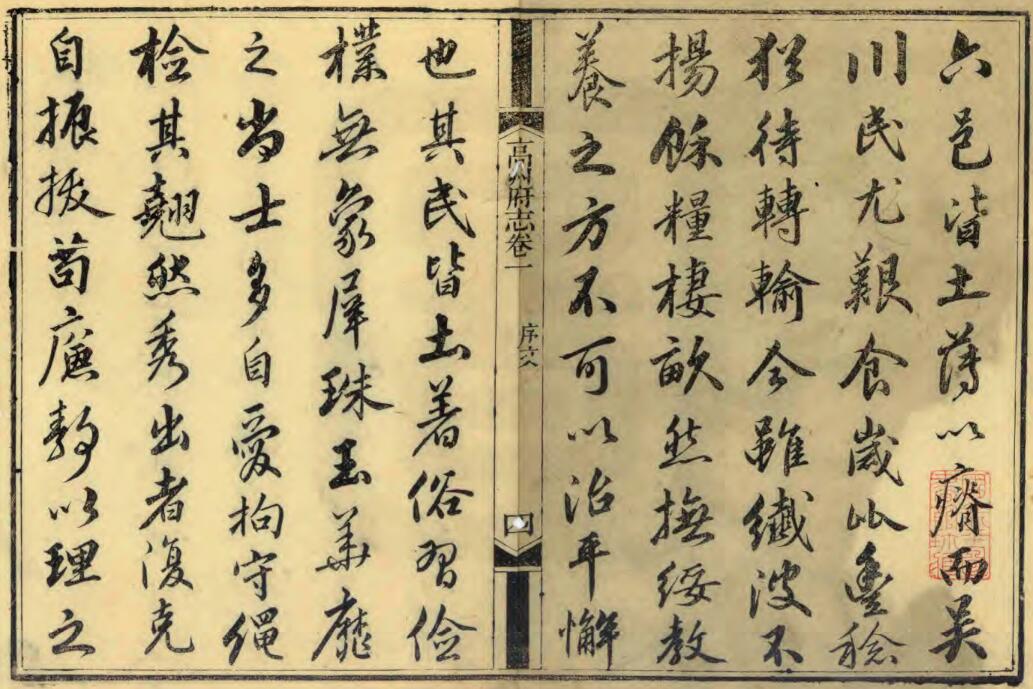 六邑皆土薄以瘠而吳
川民尤艱食歲比豊稔
猶待轉輸今雖纖波不
揚餘糧棲畝然撫綏教
養之方不可以治平懈
高州府志卷一
序六
四
也其民皆土著俗習儉
樸無象犀珠玉華靡
之尚士多自愛拘守繩
檢其翹然秀出者復克
自振拔苟廉靜以理之